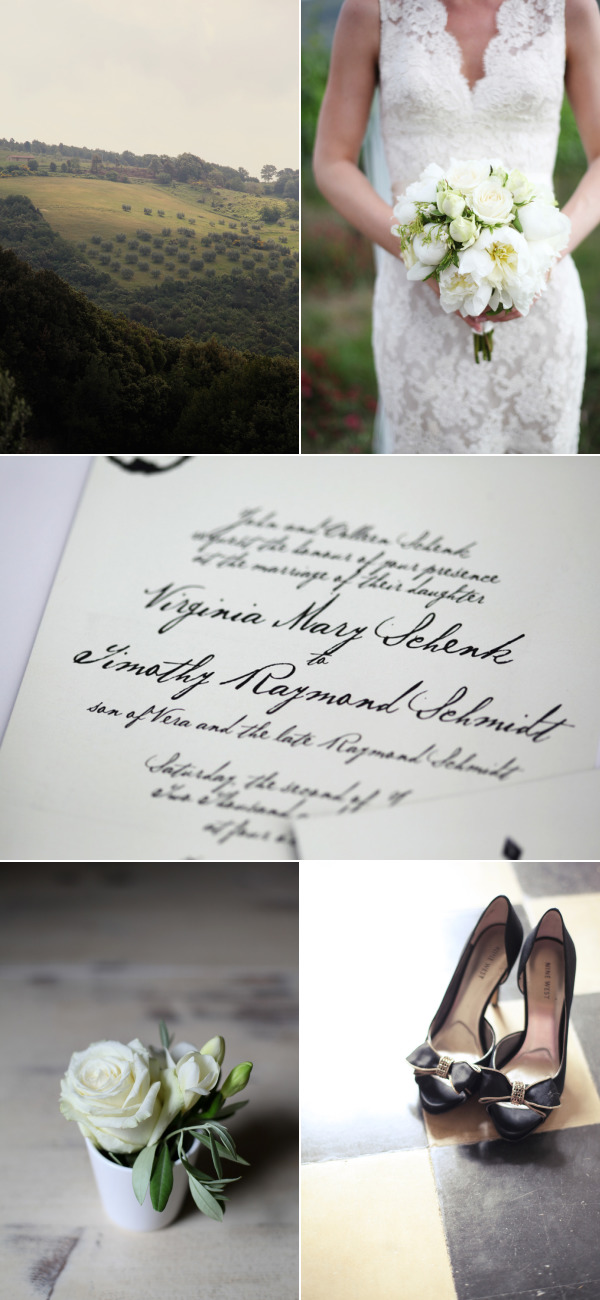 John and Colleen Schenk
request the honour of your presence
at the marriage of their daughter
Virginia Mary Schenk
to
Timothy Raymond Schmidt
son of Vera and the late Raymond Schmidt
Saturday, the second of
Two Thousand
at four
NINE WEST
NINE WEST